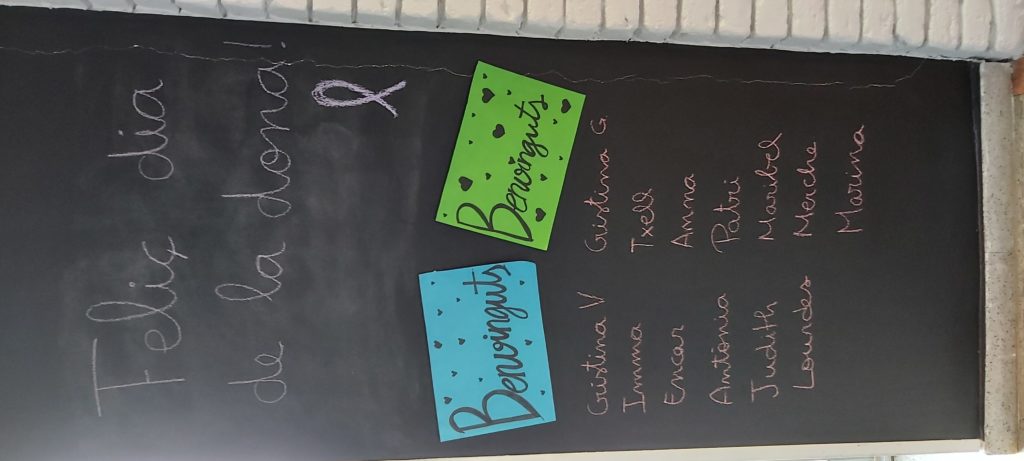 Feliç dia
de la dona!
Benvinguts
Benvinguts
Cristina V
Imma
Encar
Antònia
Judith
Lourdes
Cristina G
Txell
Anna
Patri
Maribel
Menche
Marina